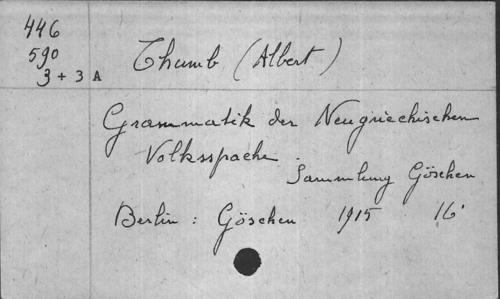 446
590
3 + 3 A
Thumb (Albert)
Grammatik der Neugriechischen
Volksspache.
Sammlung Göschen
Berlin : Göschen 1915 16°